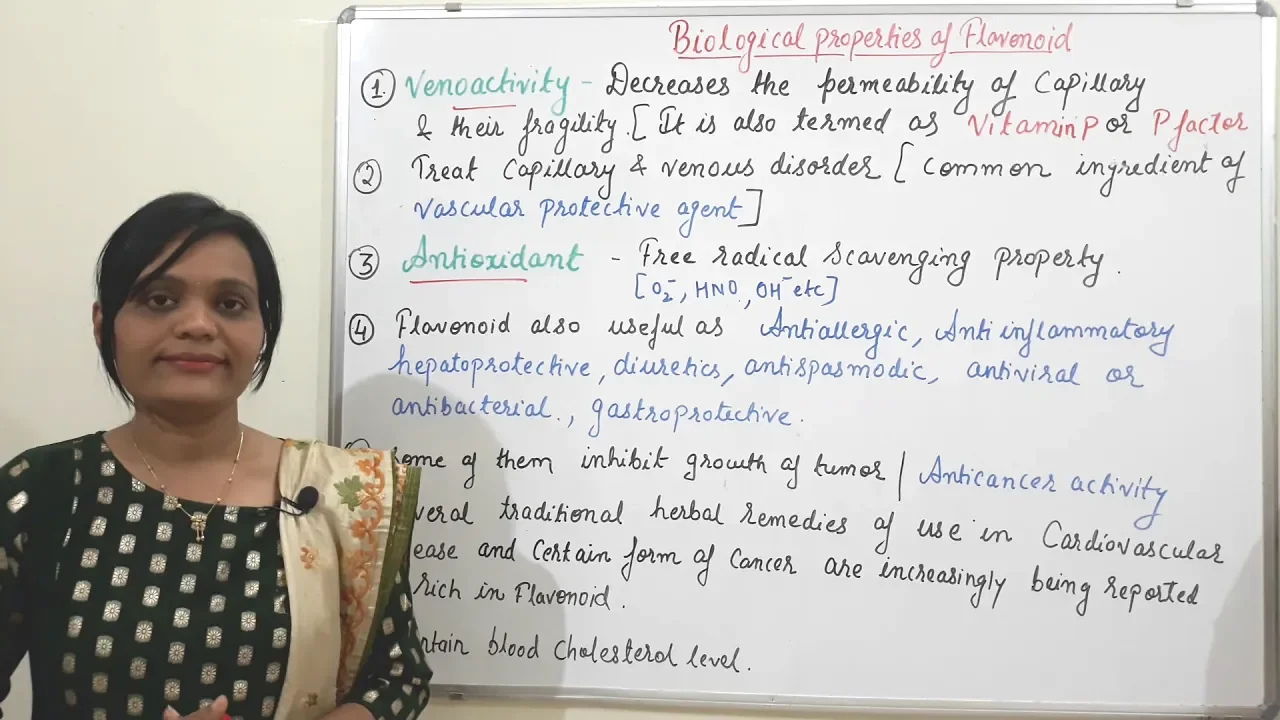 Biological properties of Flavonoid
1. Venoactivity - Decreases the permeability of Capillary
& their fragility. [ It is also termed as Vitamin P or P factor
2 Treat Capillary & venous disorder [ Common ingredient of
vascular protective agent ]
3 Antioxidant - Free radical Scavenging property.
[O2-, HNO, OH- etc]
4 Flavonoid also useful as Antiallergic, Anti inflammatory
hepatoprotective, diuretics, antispasmodic, antiviral or
antibacterial., gastroprotective.
ome of them inhibit growth of tumor | Anticancer activity
veral traditional herbal remedies of use in Cardiovascular
ease and Certain form of Cancer are increasingly being reported
rich in Flavonoid.
ntain blood Cholesterol level.